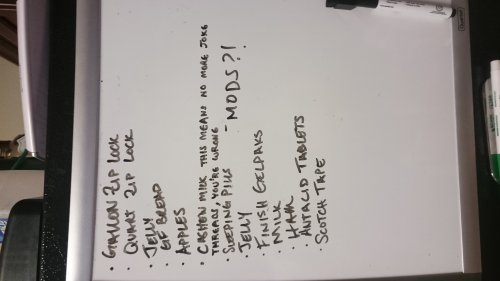 · GALLON ZIP LOCK
· QUART ZIP LOCK
· JELLY
· GF BREAD
· APPLES
· CASHEW MILK THIS MEANS NO MORE JOKE
THREADS, YOU'RE WRONG
· SLEEPING PILLS - MODS?!
· JELLY
· FINISH GELPAKS
· MILK
· HAM
· ANTACID TABLETS
· SCOTCH TAPE